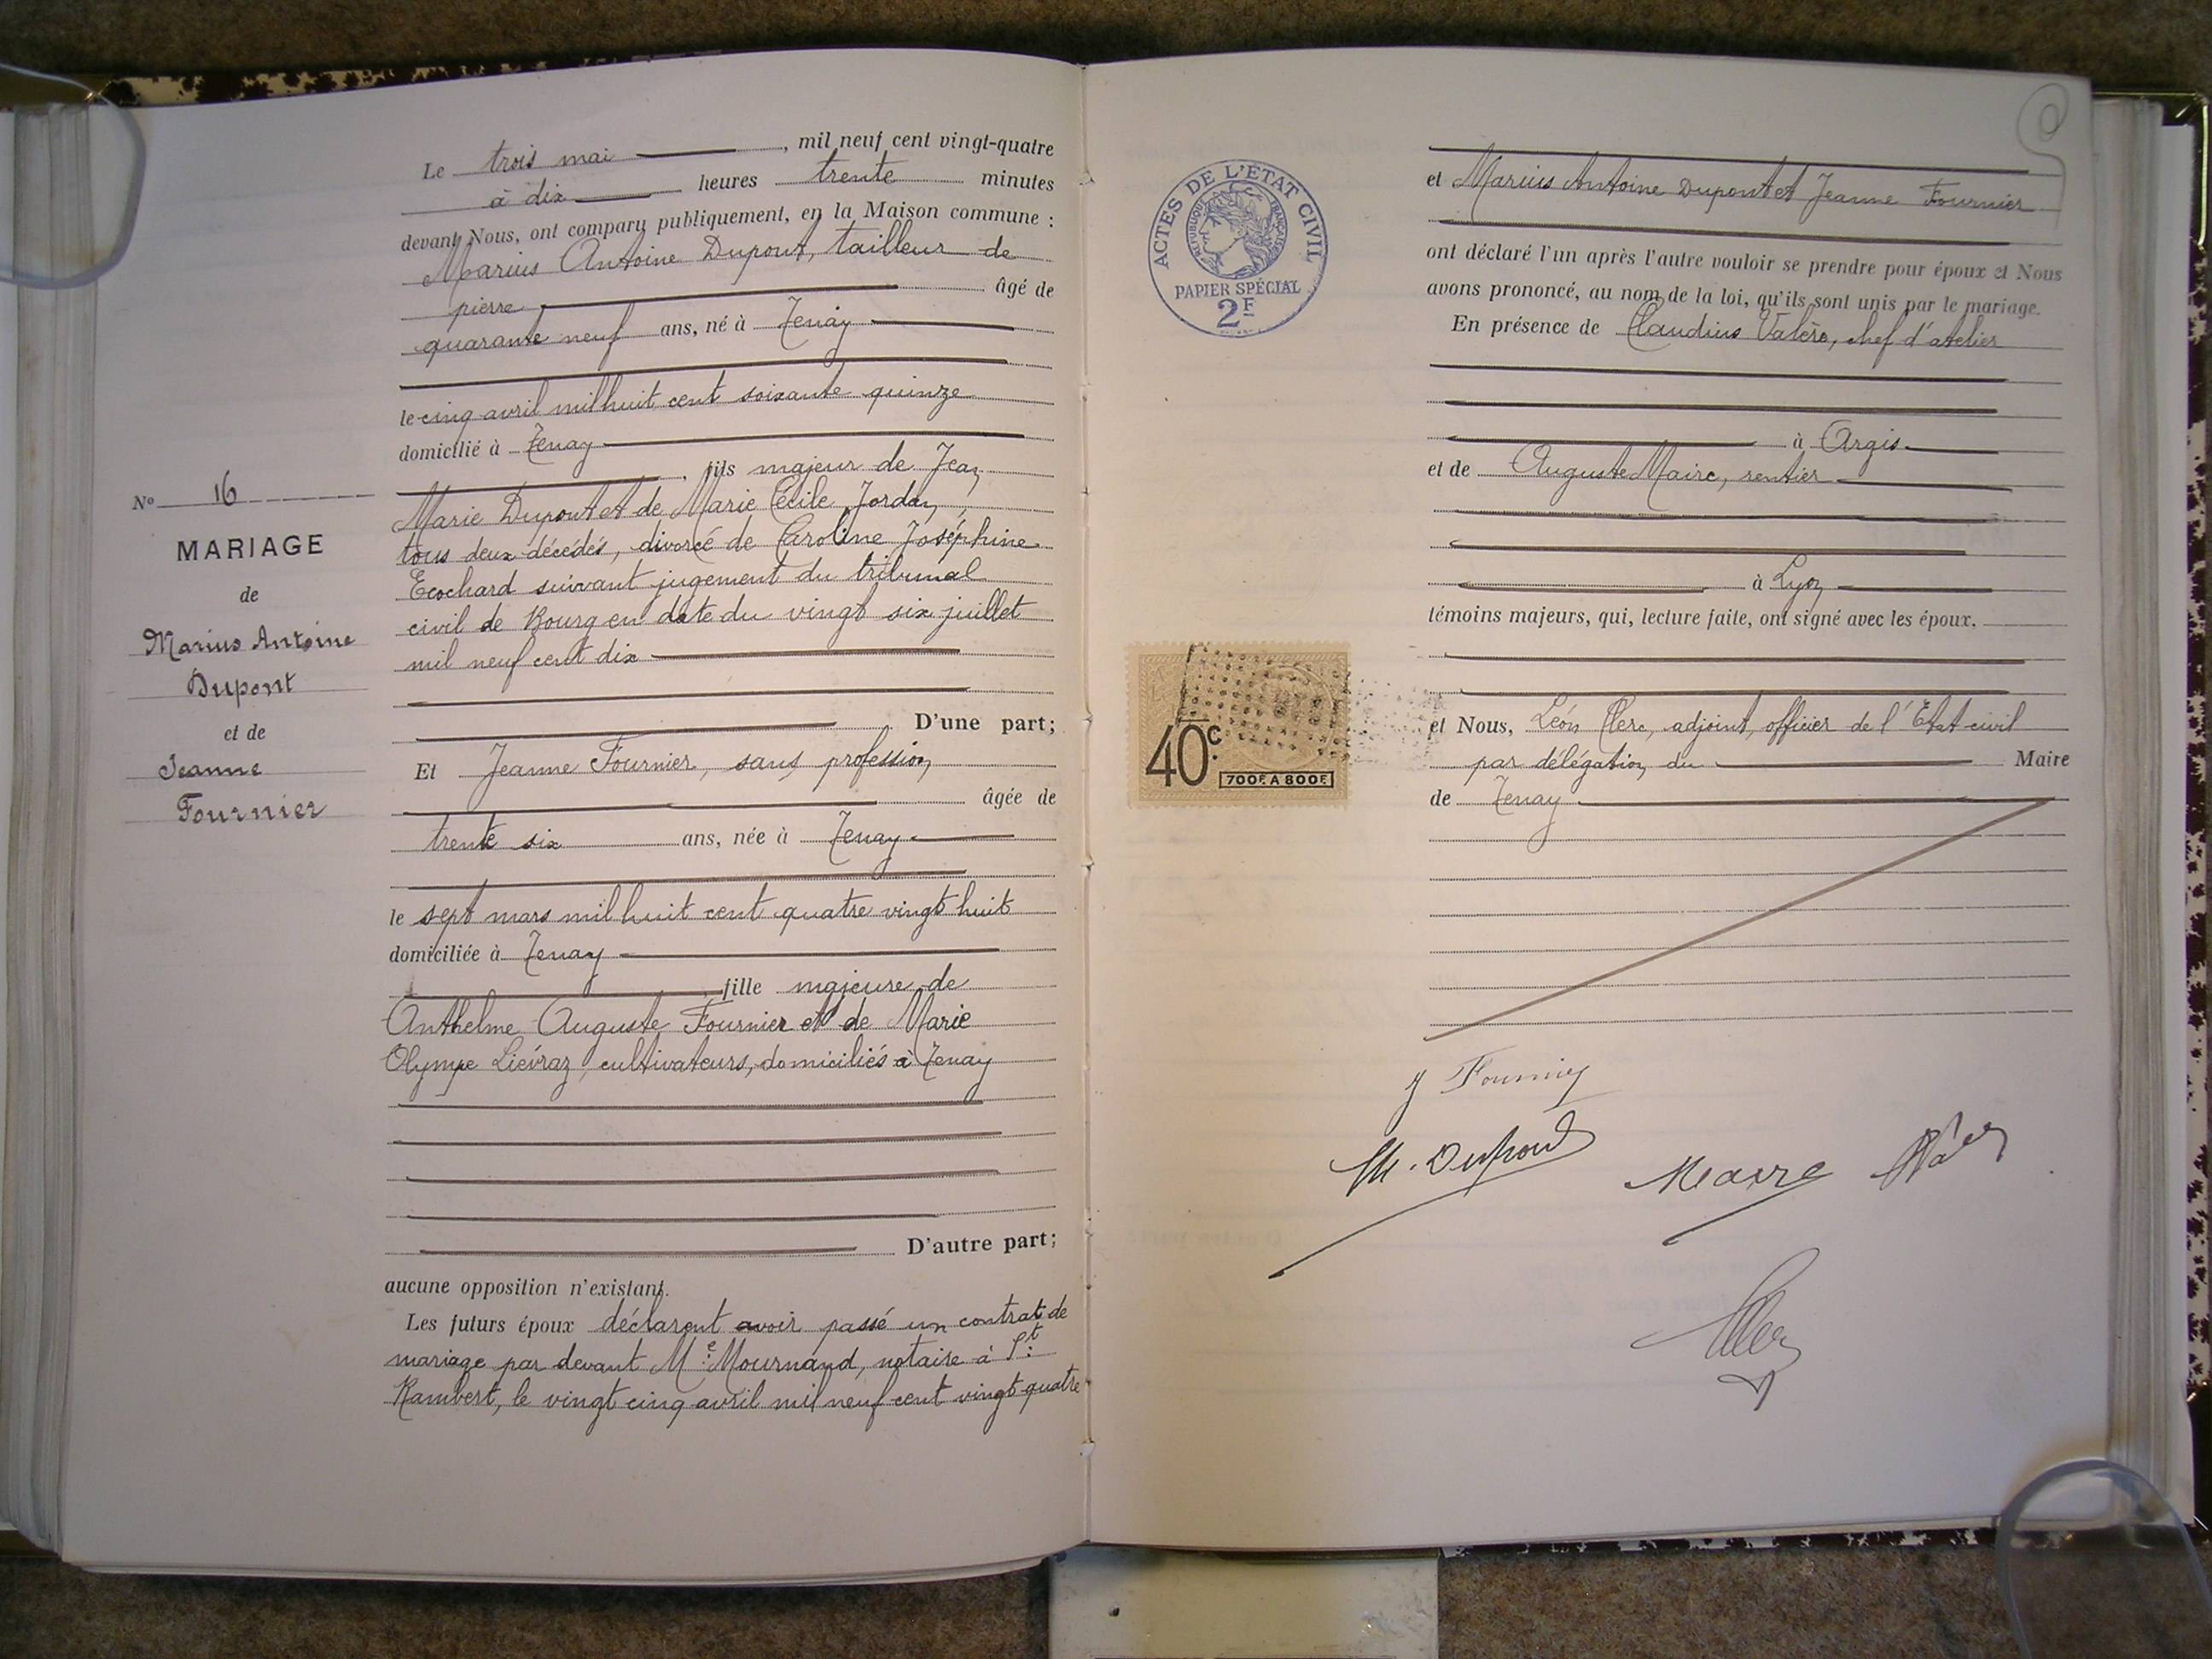 Le trois mai, mil neuf cent vingt-quatre
à dix heures trente minutes
devant Nous, ont comparu publiquement, en la Maison commune :
Marius Antoine Dupont, tailleur de
pierre âgé de
quarante neuf ans, né à Tenay
le cinq avril mil huit cent soixante quinze
domicilié à Tenay
, fils majeur de Jean
Marie Dupont et de Marie Cécile Jordan,
tous deux décédés, divorcé de Caroline Joséphine
Ecochard suivant jugement du tribunal
civil de Bourg en date du vingt six juillet
mil neuf cent dix
D'une part;
Et Jeanne Fournier, sans profession
âgée de
trente six ans, née à Tenay
le sept mars mil huit cent quatre vingt huit
domiciliée à Tenay
fille majeure de
Anthelme Auguste Fournier et de Marie
Olympe Liévraz, cultivateurs, domiciliés à Tenay
D'autre part;
aucune opposition n'existant.
Les futurs époux déclarent avoir passé un contrat de
mariage par devant Me Mournand, notaire à St
Rambert, le vingt cinq avril mil neuf cent vingt quatre
No 16
MARIAGE
de
Marius Antoine
Dupont
et de
Jeanne
Fournier
ACTES DE L'ÉTAT CIVIL
RÉPUBLIQUE FRANÇAISE
PAPIER SPÉCIAL
2F
40c
700F. A 800F.
et Marius Antoine Dupont et Jeanne Fournier
ont déclaré l'un après l'autre vouloir se prendre pour époux et Nous
avons prononcé, au nom de la loi, qu'ils sont unis par le mariage.
En présence de Claudius Valère, chef d'atelier
à Argis
et de Auguste Maire, rentier
à Lyon
témoins majeurs, qui, lecture faite, ont signé avec les époux.
et Nous, Léon Clerc, adjoint, officier de l'Etat civil
par délégation du Maire
de Tenay
J Fournier
M. Dupont
Maire